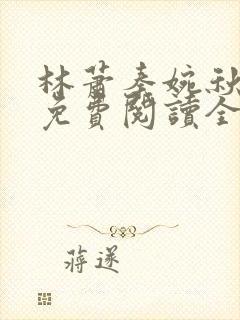 林蕭秦婉秋
免費閱讀全
蔣遂